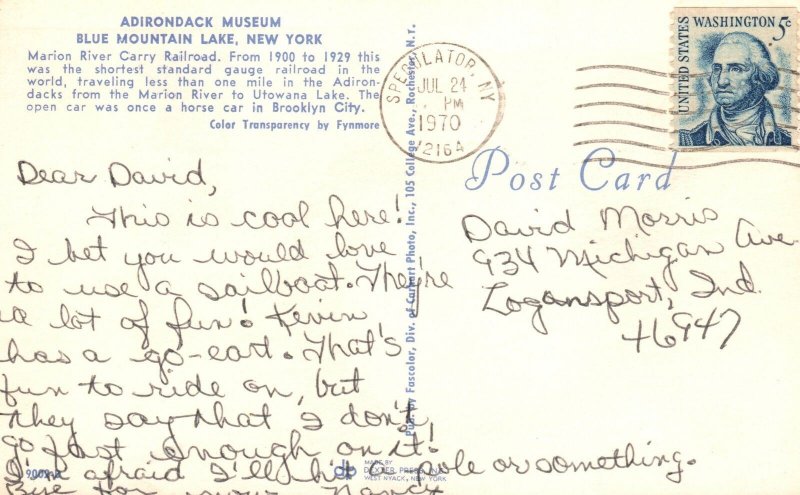 ADIRONDACK MUSEUM
BLUE MOUNTAIN LAKE, NEW YORK
Marion River Carry Railroad. From 1900 to 1929 this
was the shortest standard gauge railroad in the
world, traveling less than one mile in the Adiron-
dacks from the Marion River to Utowana Lake. The
open car was once a horse car in Brooklyn City.
Color Transparency by Fynmore
SPECULATOR, NY
JUL 24
PM
1970
12164
UNITED STATES
WASHINGTON 5c
Post Card
Dear David,
This is cool here!
I bet you would love
to use a sailboat. They're
a lot of fun! Kevin
has a go-cart. That's
fun to ride on, but
they say that I don't
go fast enough on it!
I'm afraid I'll hit a pole or something.
Bye for now Nancy
David Morris
934 Michigan Ave.
Logansport, Ind.
46947
Pub. by Fascolor, Div. of Carhart Photo, Inc., 105 College Ave., Rochester, N.Y.
MADE BY
DEXTER PRESS, INC.
WEST NYACK, NEW YORK